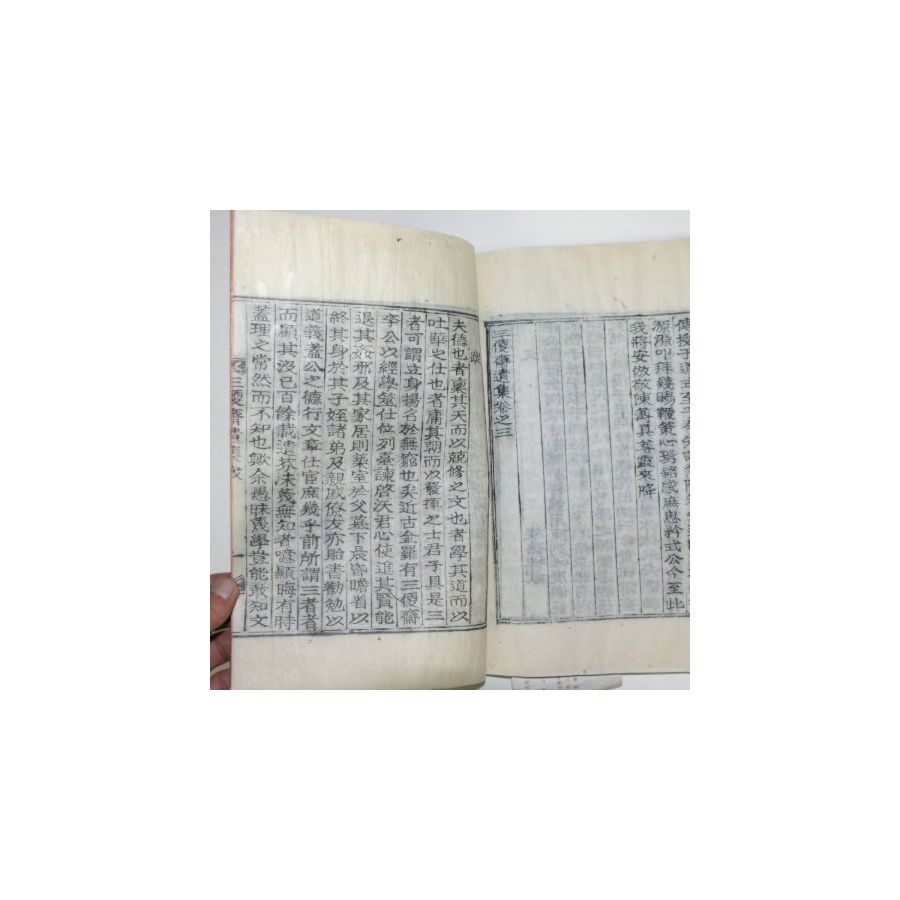 我將安倣敬陳舊具尊靈來降
三便齋遺集卷之三
跋
夫德也者稟其天而以兢修之文也者學其道而以
吐華之仕也者庸其朝而以發揮之士君子具是三
者可謂立身揚名於無窮也矣近古金羅有三便齋
李公以經學筮仕位列臺諫啓沃君心使進其賢能
退其姦邪及其家居則築室於父墓下晨昏瞻省以
終其身於其子姪諸弟及親戚僚友亦貽書勸勉以
道義蓋公之德行文章仕宦庶幾乎前所謂三者者
而顧其沒已百餘載遺芬沬幾無知者噫顯晦有時
蓋理之常然而不知也歟余愚昧蔑學豈能敢知文
三便齋遺集跋